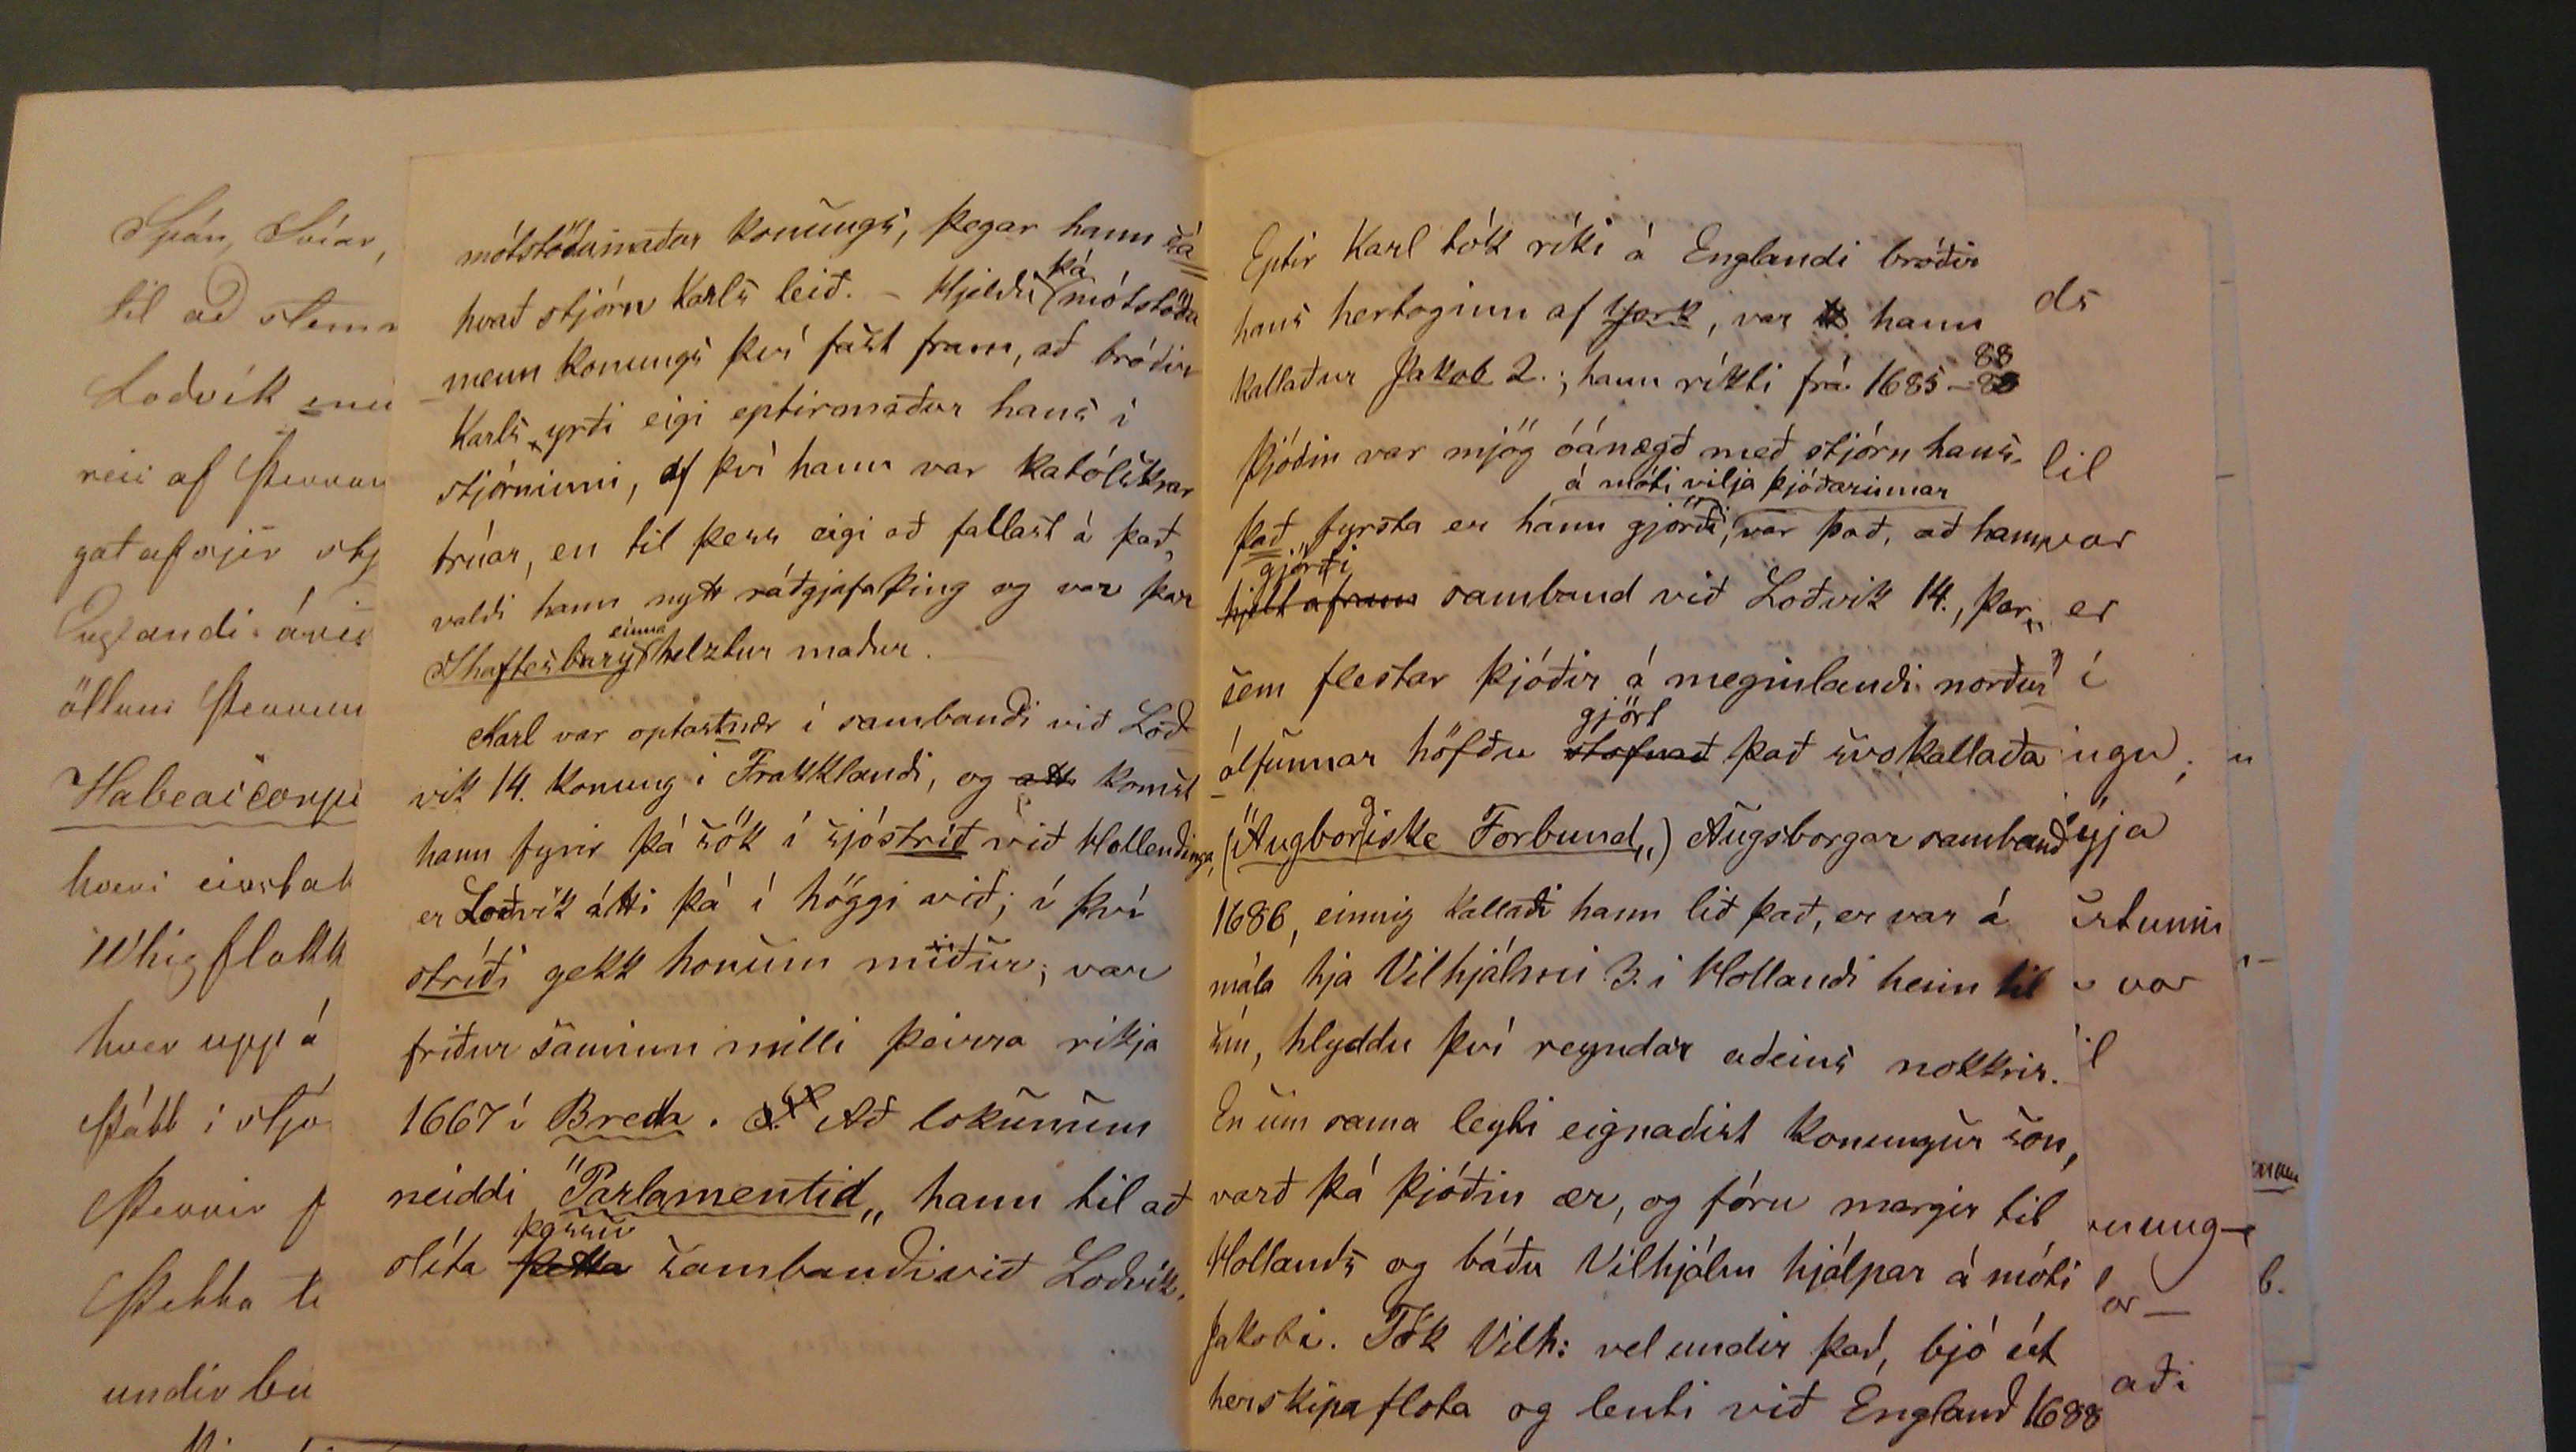 Spán, Svíar,
til að stem
Loðvík
af þessum
gat af sjer stj
Englandi
öllum þessum
Habeas corpu
hveri einstak
Whig flokk
hver upp á
þátt i stjo
þessir f
þekka
undir bu
mótstöðumaður konungs, þegar hann sá
hvað stjórn Karls leið. - Hjeldu þá mótstöðu
menn konungs því fast fram, að bróðir
Karls yrði eigi eptirmaður hans í
stjórninni, af því hann var katólskrar
trúar, en til þess eigi að fallast á það,
valdi hann nytt ráðgjafaþing og var þar
Shaftesbury einna helztur maður.
Karl var optastnær í sambandi við Loð
vik 14. konung í Frakklandi, og komst
hann fyrir þá sök í sjóstríð við Hollendinga,
er Loðvík átti þá í höggi við; í því
stríði gekk honum miður; var
friður saminn milli þeirra rikja
1667 í Breda. Að lokunum
neiddi "Parlamentid„ hann til að
slíta þetta þessu sambandi við Loðvík.
Eptir Karl tók ríki á Englandi bróðir
hans hertoginn af York, var hann
kallaður Jakob 2.; hann ríkti frá 1685-88
Þjóðin var mjög óánægð með stjórn hans.
á móti vilja þjóðarinnar
Það fyrsta er hann gjörði, var það, að hann
gjörði
hjelt áfram samband við Loðvik 14., þar
sem flestar þjóðir á meginlandi norður
gjört
álfunnar höfðu stofnað það svokallaða
("Augborgiske Forbund„) Augsborgar samband
1686, einnig kallaði hann lið það, er var á
mála hja Vilhjálmi 3. i Hollandi heim til
sín, hlyddu því reyndar aðeins nokkrir.
En um sama leyti eignaðist konungur son,
varð þá þjóðin ær, og fóru margir til
Hollands og báðu Vilhjálm hjálpar á móti
Jakobi. Tók Vilh: vel undir það, bjó út
herskipaflota og lenti við England 1688
ds
til
var
er
í
ugu,
ýja
var
il
nung-
or-
aði
b.